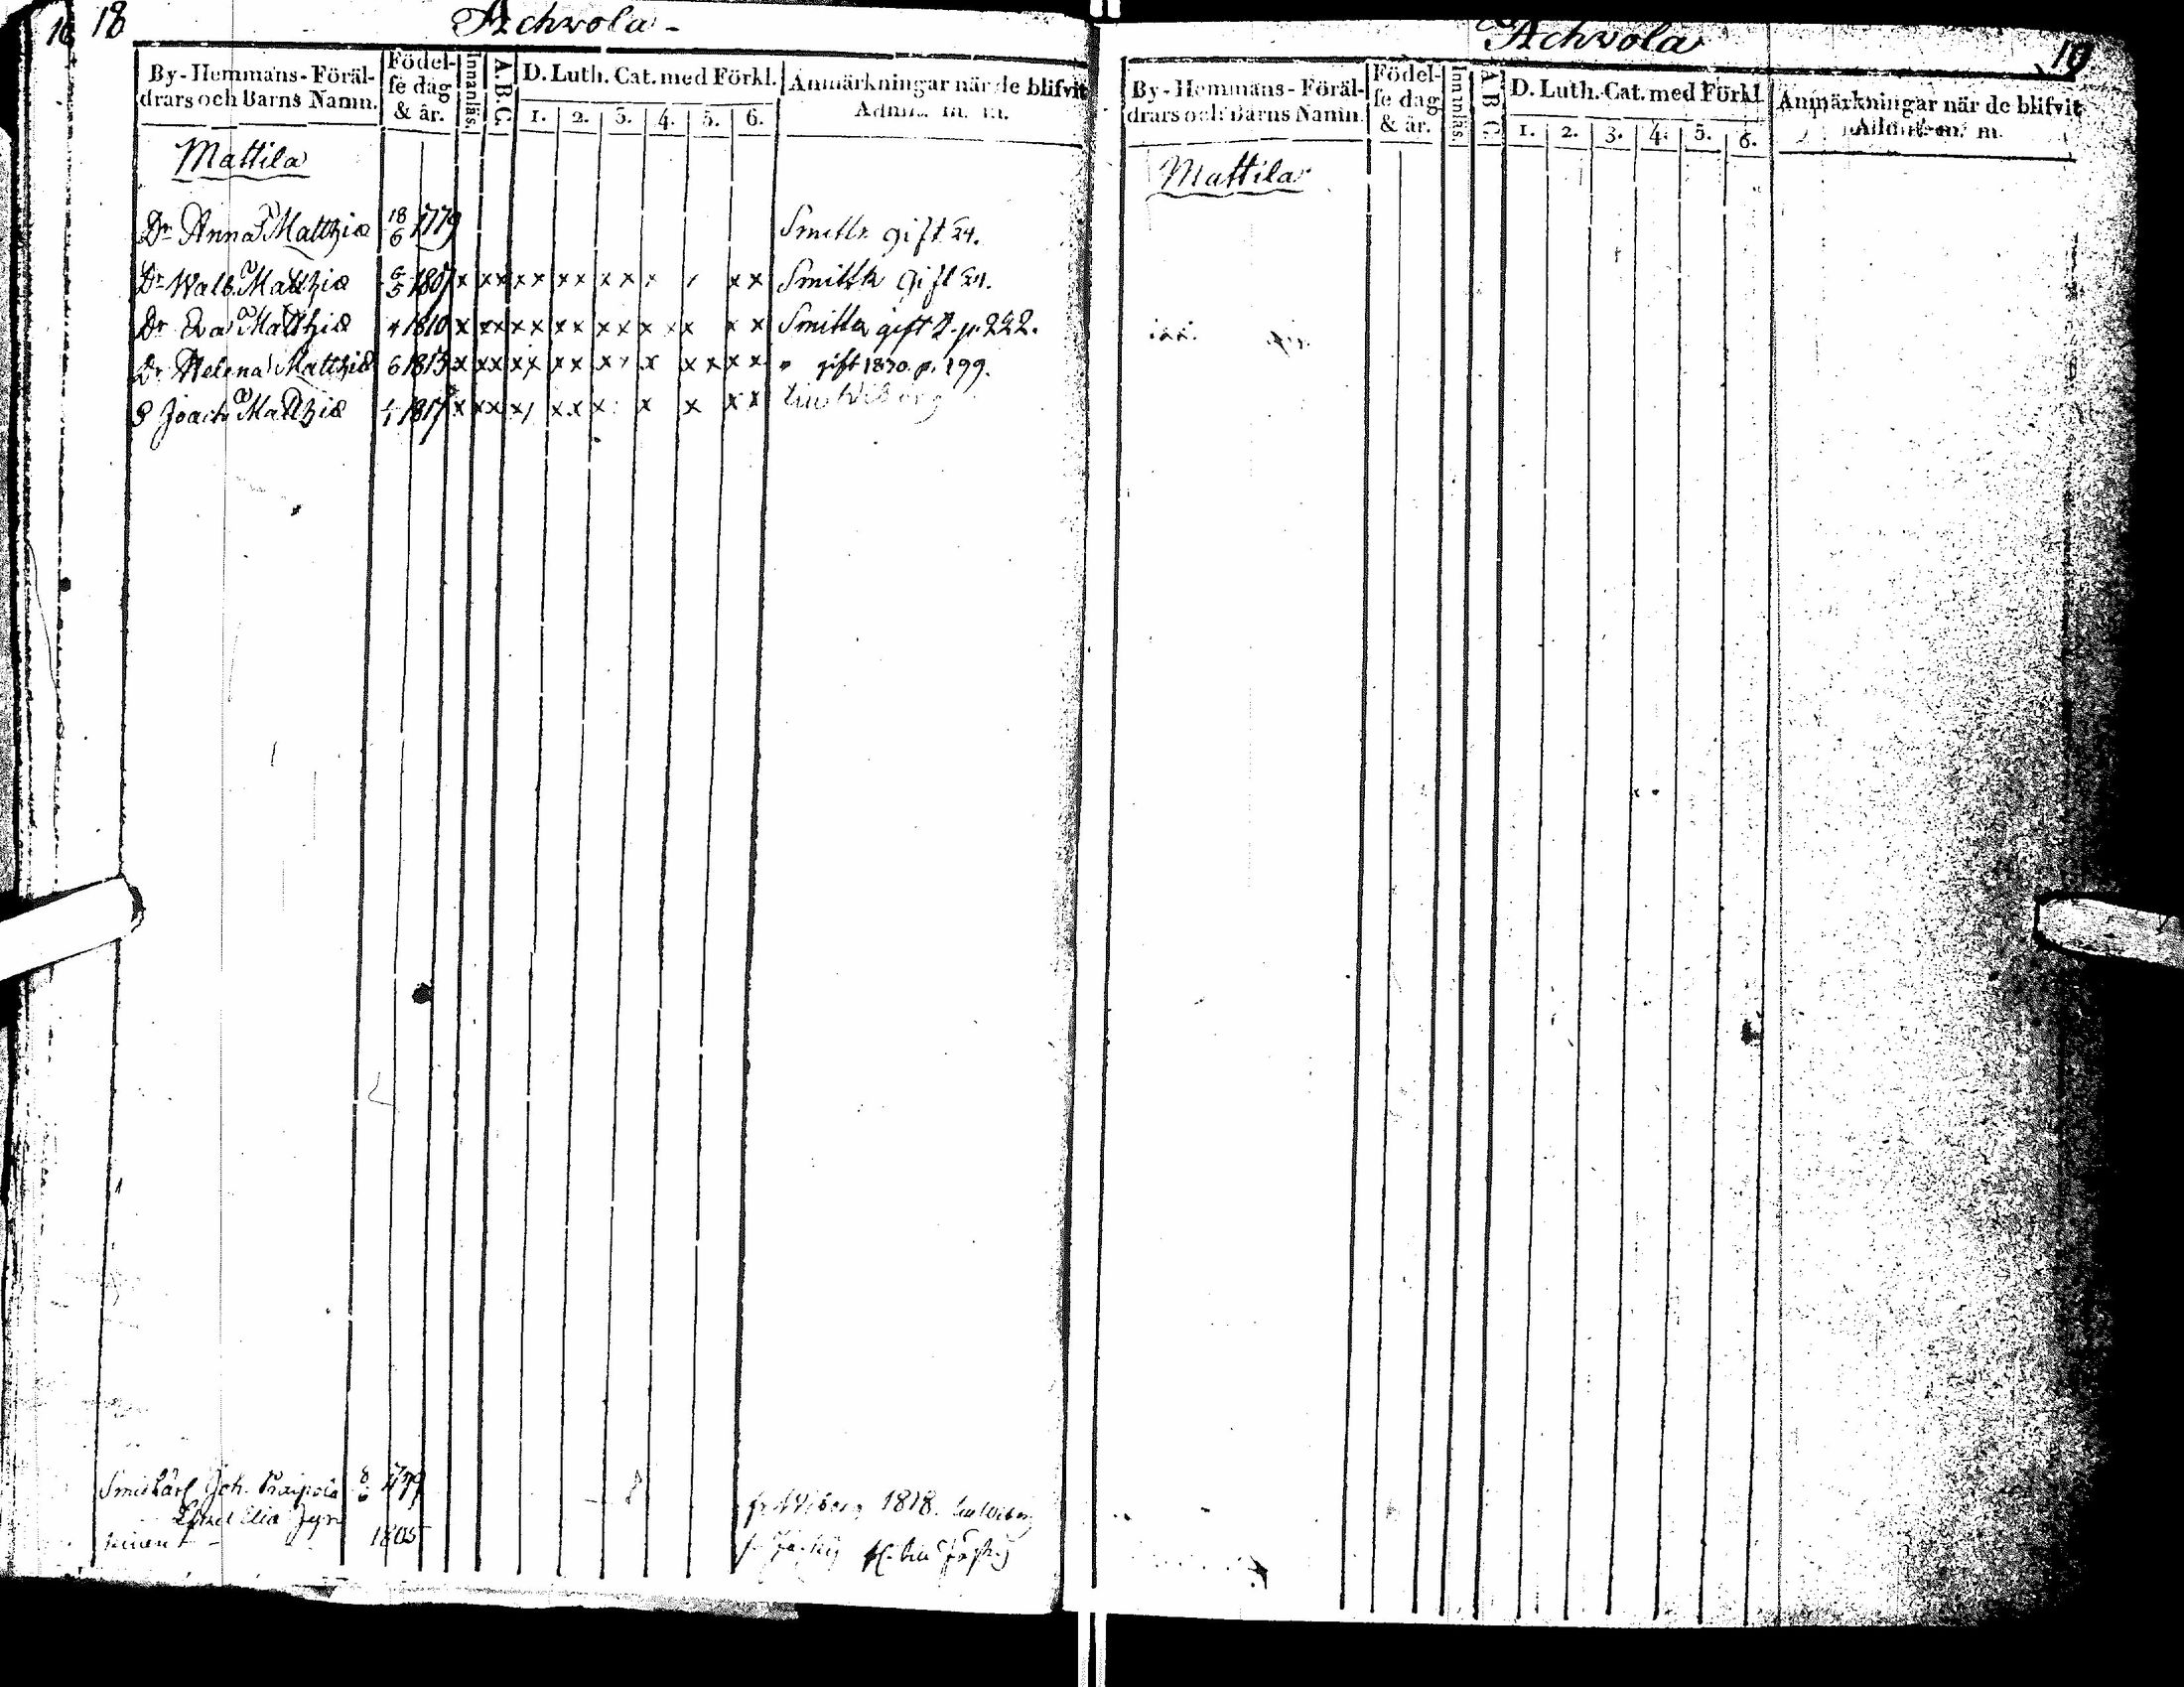 18
Achvola
By-Hemmans-Föräl-
drars och Barns Namn.
Födel-
se dag
& år.
Innanläs.
A.B.C.
D. Luth. Cat. med Förkl.
1. 2. 3. 4. 5. 6.
Anmärkningar när de blifvit
Adm. m. m.
Mattila
Dr Anna Matthiæ 18/6 1779 gift 24.
Dr Walb. Matthiæ 1807 x xx xx xx xx x x x Smitta gift 24.
Dr Eva Matthiæ 4 1810 x xx xx xx xx x x x x x Smitta gift p. 222.
Dr Helena Matthiæ 6 1813 x xx xx xx x x x x x x " gift 1830. p. 199.
S Joach Matthiæ 1817 x xx x xx x x x x x
Joh. 8/6 1779 1818.
Elia
1805
Achvola
19
By-Hemmans-Föräl-
drars och Barns Namn.
Födel-
se dag
& år.
Innanläs.
A B C
D. Luth. Cat. med Förkl
1. 2. 3. 4. 5. 6.
Anmärkningar när de blifvit
m. m.
Mattila